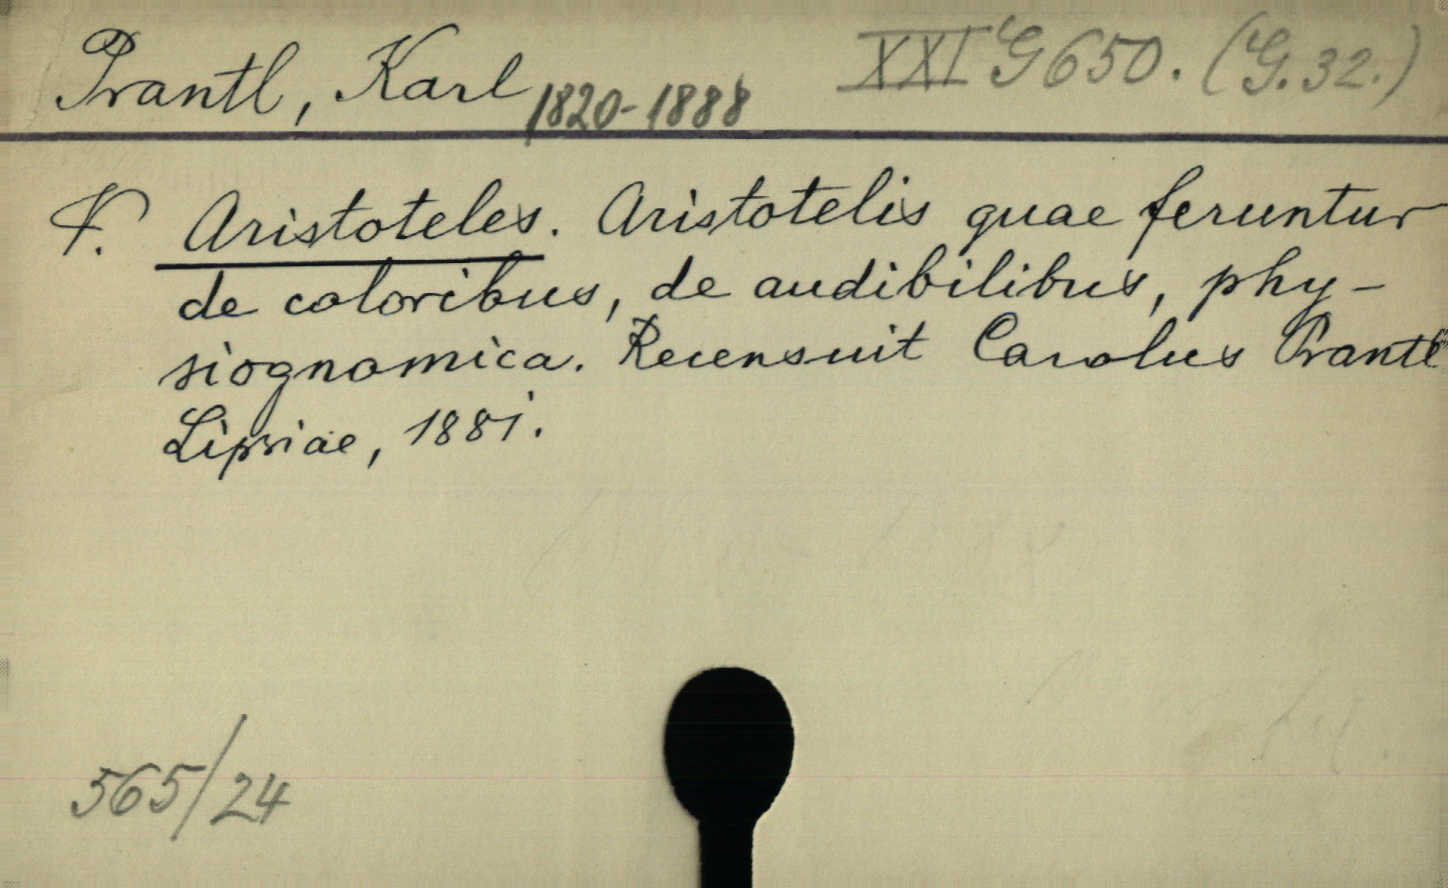 Prantl, Karl 1820-1888 XXI G 650. (G. 32.)
V. Aristoteles. Aristotelis quae feruntur
de coloribus, de audibilibus, phy-
siognomica. Recensuit Carolus Prantl
Lipsiae, 1881.
565/24